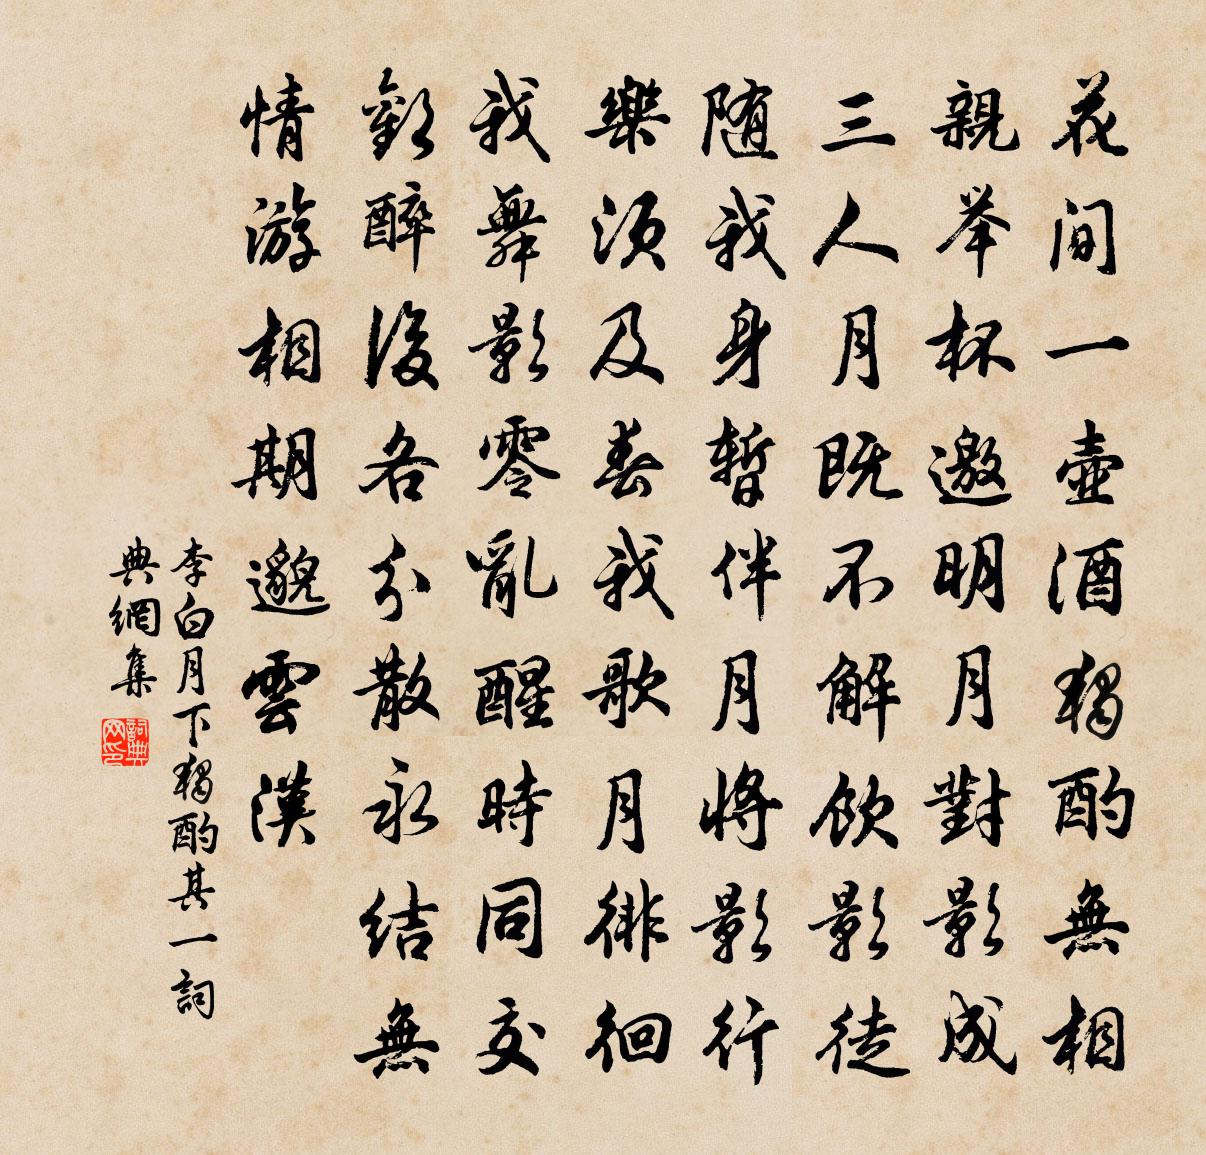 花间一壺酒獨酌無相
親举杯邀明月對影成
三人月既不解飲影徒
随我身暫伴月將影行
樂須及春我歌月徘徊
我舞影零亂醒時同交
歡醉後各分散永結無
情游相期邈雲漢
李白月下獨酌其一詞
典網集
詞典
网印